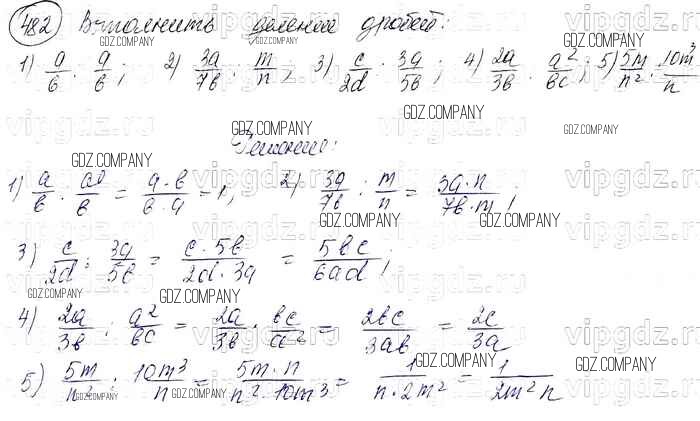 482 Выполнить деление дробей:
1) a/в : a/в; 2) 3a/7в : m/n; 3) c/2d : 3a/5в; 4) 2a/3в : a²/вc; 5) 5m/n² : 10m³/n
Решение:
1) a/в : a/в = a·в/в·a = 1; 2) 3a/7в : m/n = 3a·n/7в·m;
3) c/2d : 3a/5в = c·5в/2d·3a = 5вc/6ad;
4) 2a/3в : a²/вc = 2a/3в · вc/a² = 2вc/3aв = 2c/3a
5) 5m/n² : 10m³/n = 5m·n/n²·10m³ = 1/n·2m² = 1/2m²n
GDZ.COMPANY
vipgdz.ru